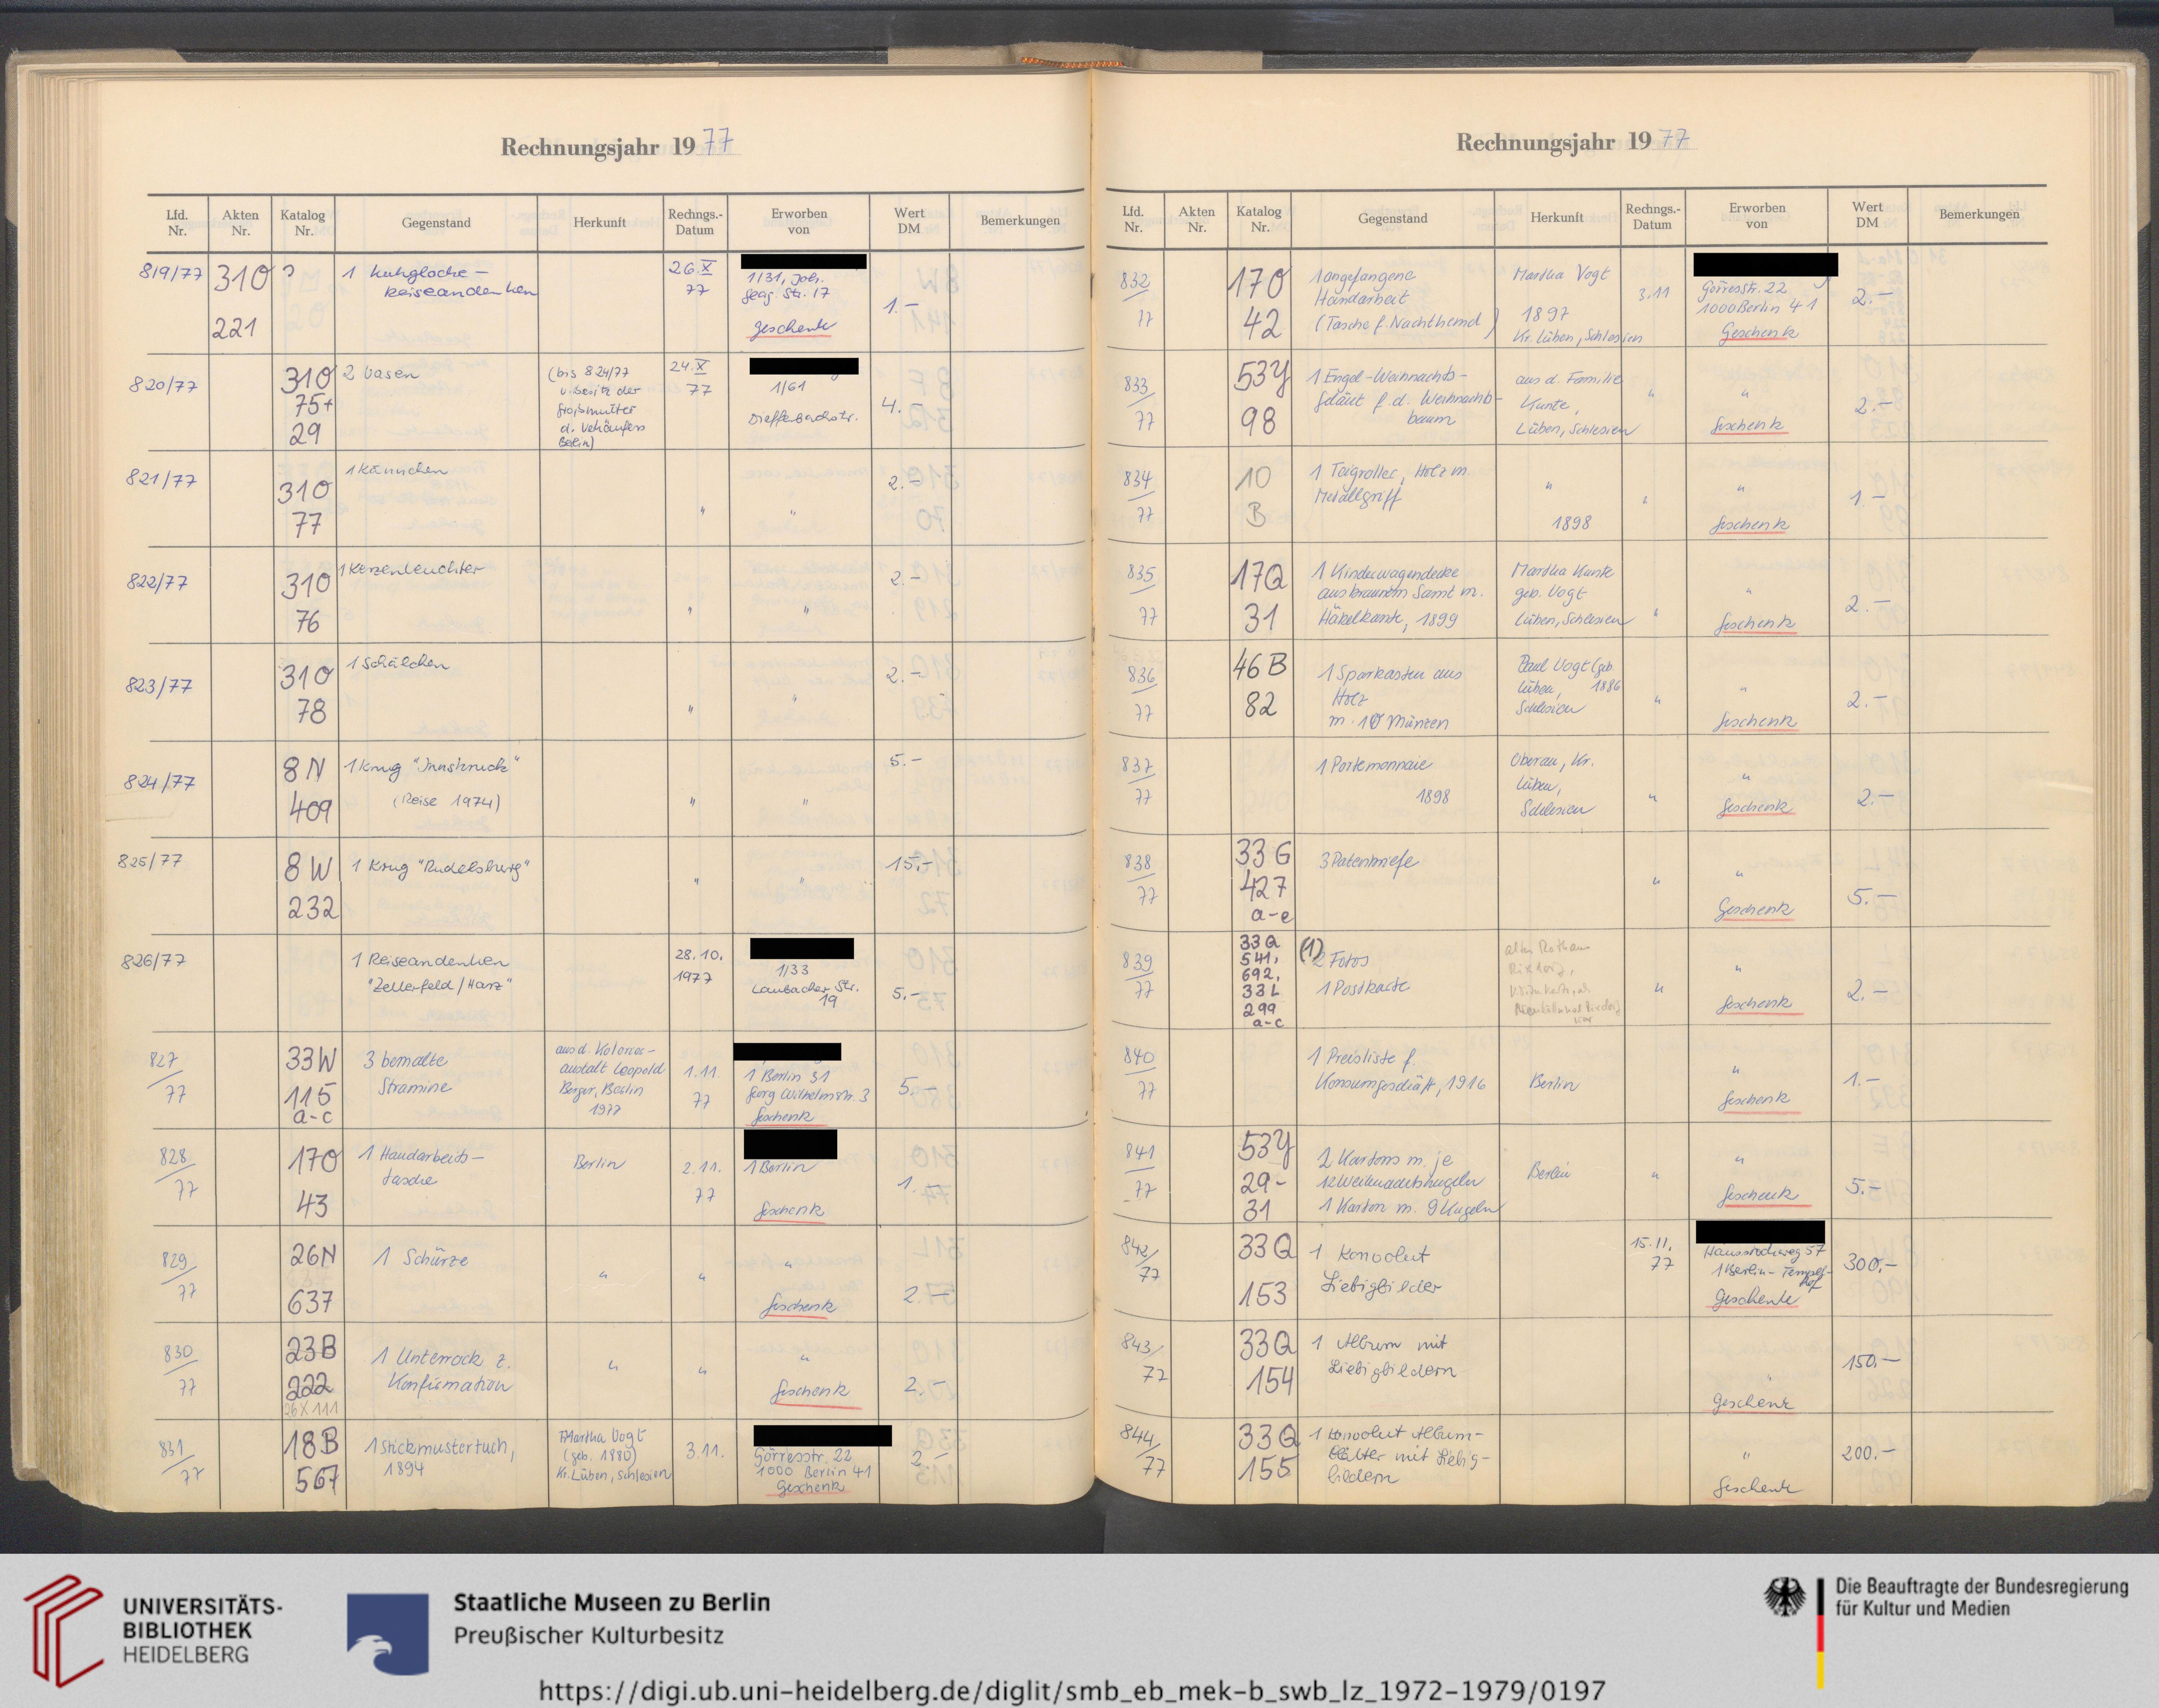 Rechnungsjahr 1977
Lfd. Nr.
Akten Nr.
Katalog Nr.
Gegenstand
Herkunft
Rechngs.-Datum
Erworben von
Wert DM
Bemerkungen
819/77
310
221
?
1 Kuhglocke –
Reiseandenken
26.X
77
1/31, Joh.
Georg. Str. 17
Geschenk
1.–
820/77
310
75+
29
2 Vasen
(bis 824/77
Großmutter
Berlin)
24.X
77
1/61
Dieffenbachstr.
4.–
821/77
310
77
1 Kännchen
"
"
2.–
822/77
310
76
1 Kerzenleuchter
"
"
2.–
823/77
310
78
1 Schälchen
"
"
2.–
824/77
8 N
409
1 Krug "Innsbruck"
(Reise 1974)
"
"
5.–
825/77
8 W
232
1 Krug "Rudelsburg"
"
"
15.–
826/77
1 Reiseandenken
"Zellerfeld / Harz"
28.10.
1977
1/33
Laubacher Str.
19
5.–
827/77
33W
115
a-c
3 bemalte
Stramine
aus d. Kolorier-
anstalt Leopold
Berger, Berlin
1977
1.11
77
1 Berlin 31
Georg Wilhelmstr. 3
Geschenk
5.–
828/77
170
43
1 Handarbeits-
tasche
Berlin
2.11.
77
1 Berlin
Geschenk
1.–
829/77
26N
637
1 Schürze
"
"
"
Geschenk
2.–
830/77
23B
222
26X111
1 Unterrock z.
Konfirmation
"
"
"
Geschenk
2.–
831/77
18B
567
1 Stickmustertuch,
1894
Martha Vogt
(geb. 1880)
Kr. Lüben, Schlesien
3.11.
Görresstr. 22
1000 Berlin 41
Geschenk
2.–
Rechnungsjahr 1977
Lfd. Nr.
Akten Nr.
Katalog Nr.
Gegenstand
Herkunft
Rechngs.-Datum
Erworben von
Wert DM
Bemerkungen
832/77
170
42
1 angefangene
Handarbeit
(Tasche f. Nachthemd)
Martha Vogt
1897
Kr. Lüben, Schlesien
3.11
Görresstr. 22
1000 Berlin 41
Geschenk
2.–
833/77
53Y
98
1 Engel-Weihnachts-
geläut f. d. Weihnachts-
baum
aus d. Familie
Kunte,
Lüben, Schlesien
"
"
Geschenk
2.–
834/77
10
B
1 Teigroller, Holz m.
Metallgriff
"
1898
"
"
Geschenk
1.–
835/77
17Q
31
1 Kinderwagendecke
aus braunem Samt m.
Häkelkante, 1899
Martha Kunte
geb. Vogt
Lüben, Schlesien
"
"
Geschenk
2.–
836/77
46B
82
1 Sparkasten aus
Holz
m. 10 Münzen
Paul Vogt (geb.
Lüben, 1886
Schlesien
"
"
Geschenk
2.–
837/77
1 Portemonnaie
1898
Oberau, Kr.
Lüben,
Schlesien
"
"
Geschenk
2.–
838/77
33G
427
a-e
3 Patenbriefe
"
"
Geschenk
5.–
839/77
33Q
541,
692,
33L
299
a-c
(1)
2 Fotos
1 Postkarte
altes Rathaus
Rixdorf,
"
"
Geschenk
2.–
840/77
1 Preisliste f.
Konsumgeschäft, 1916
Berlin
"
Geschenk
1.–
841/77
53Y
29-
31
2 Kartons m. je
12 Weihnachtskugeln
1 Karton m. 9 Kugeln
Berlin
"
"
Geschenk
5.–
842/77
33Q
153
1 Konvolut
Liebigbilder
15.11.
77
57
1 Berlin-Tempel-
hof
Geschenk
300.–
843/77
33Q
154
1 Album mit
Liebigbildern
Geschenk
150.–
844/77
33Q
155
1 Konvolut Album-
blätter mit Liebig-
bildern
"
Geschenk
200.–
UNIVERSITÄTS-
BIBLIOTHEK
HEIDELBERG
Staatliche Museen zu Berlin
Preußischer Kulturbesitz
Die Beauftragte der Bundesregierung
für Kultur und Medien
https://digi.ub.uni-heidelberg.de/diglit/smb_eb_mek-b_swb_lz_1972-1979/0197